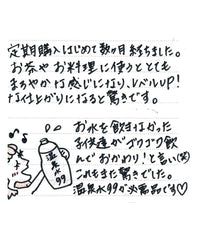 定期購入はじめて数ヶ月経ちました。
お茶やお料理に使うととても
まろやかな感じになり、レベルUP!
な仕上がりになると驚きです。
お水を飲まなかった
子供達がゴクゴク飲
んでおかわり!と言い(笑)
これもまた驚きでした。
温泉水99が必需品です♡
温泉水99